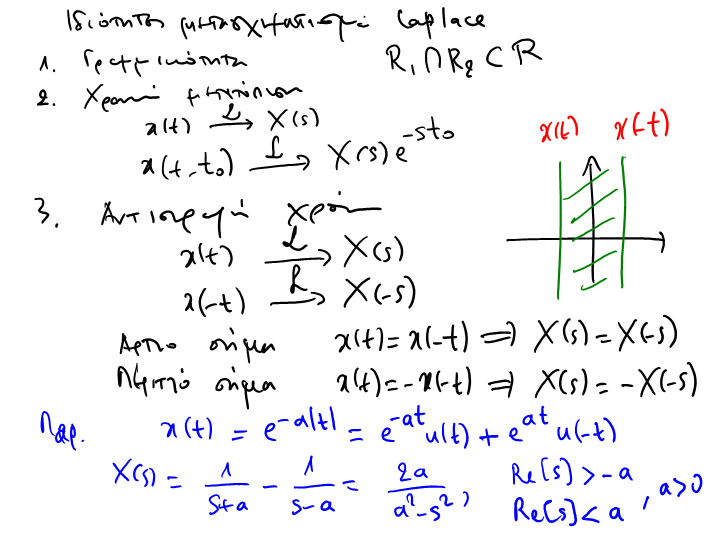 Ιδιότητες μετασχηματισμού Laplace
1. Γραμμικότητα R₁∩R₂ ⊂ R
2. Χρονική μετατόπιση
x(t) —ℒ→ X(s)
x(t-t₀) —ℒ→ X(s) e^{-st₀}
x(t) x(-t)
3. Αντιστροφή χρόνου
x(t) —ℒ→ X(s)
x(-t) —ℒ→ X(-s)
Άρτιο σήμα x(t) = x(-t) ⟹ X(s) = X(-s)
Περιττό σήμα x(t) = -x(-t) ⟹ X(s) = -X(-s)
Παρ. x(t) = e^{-a|t|} = e^{-at} u(t) + e^{at} u(-t)
X(s) = 1/(s+a) - 1/(s-a) = 2a/(a²-s²), Re[s] > -a
Re[s] < a , a>0